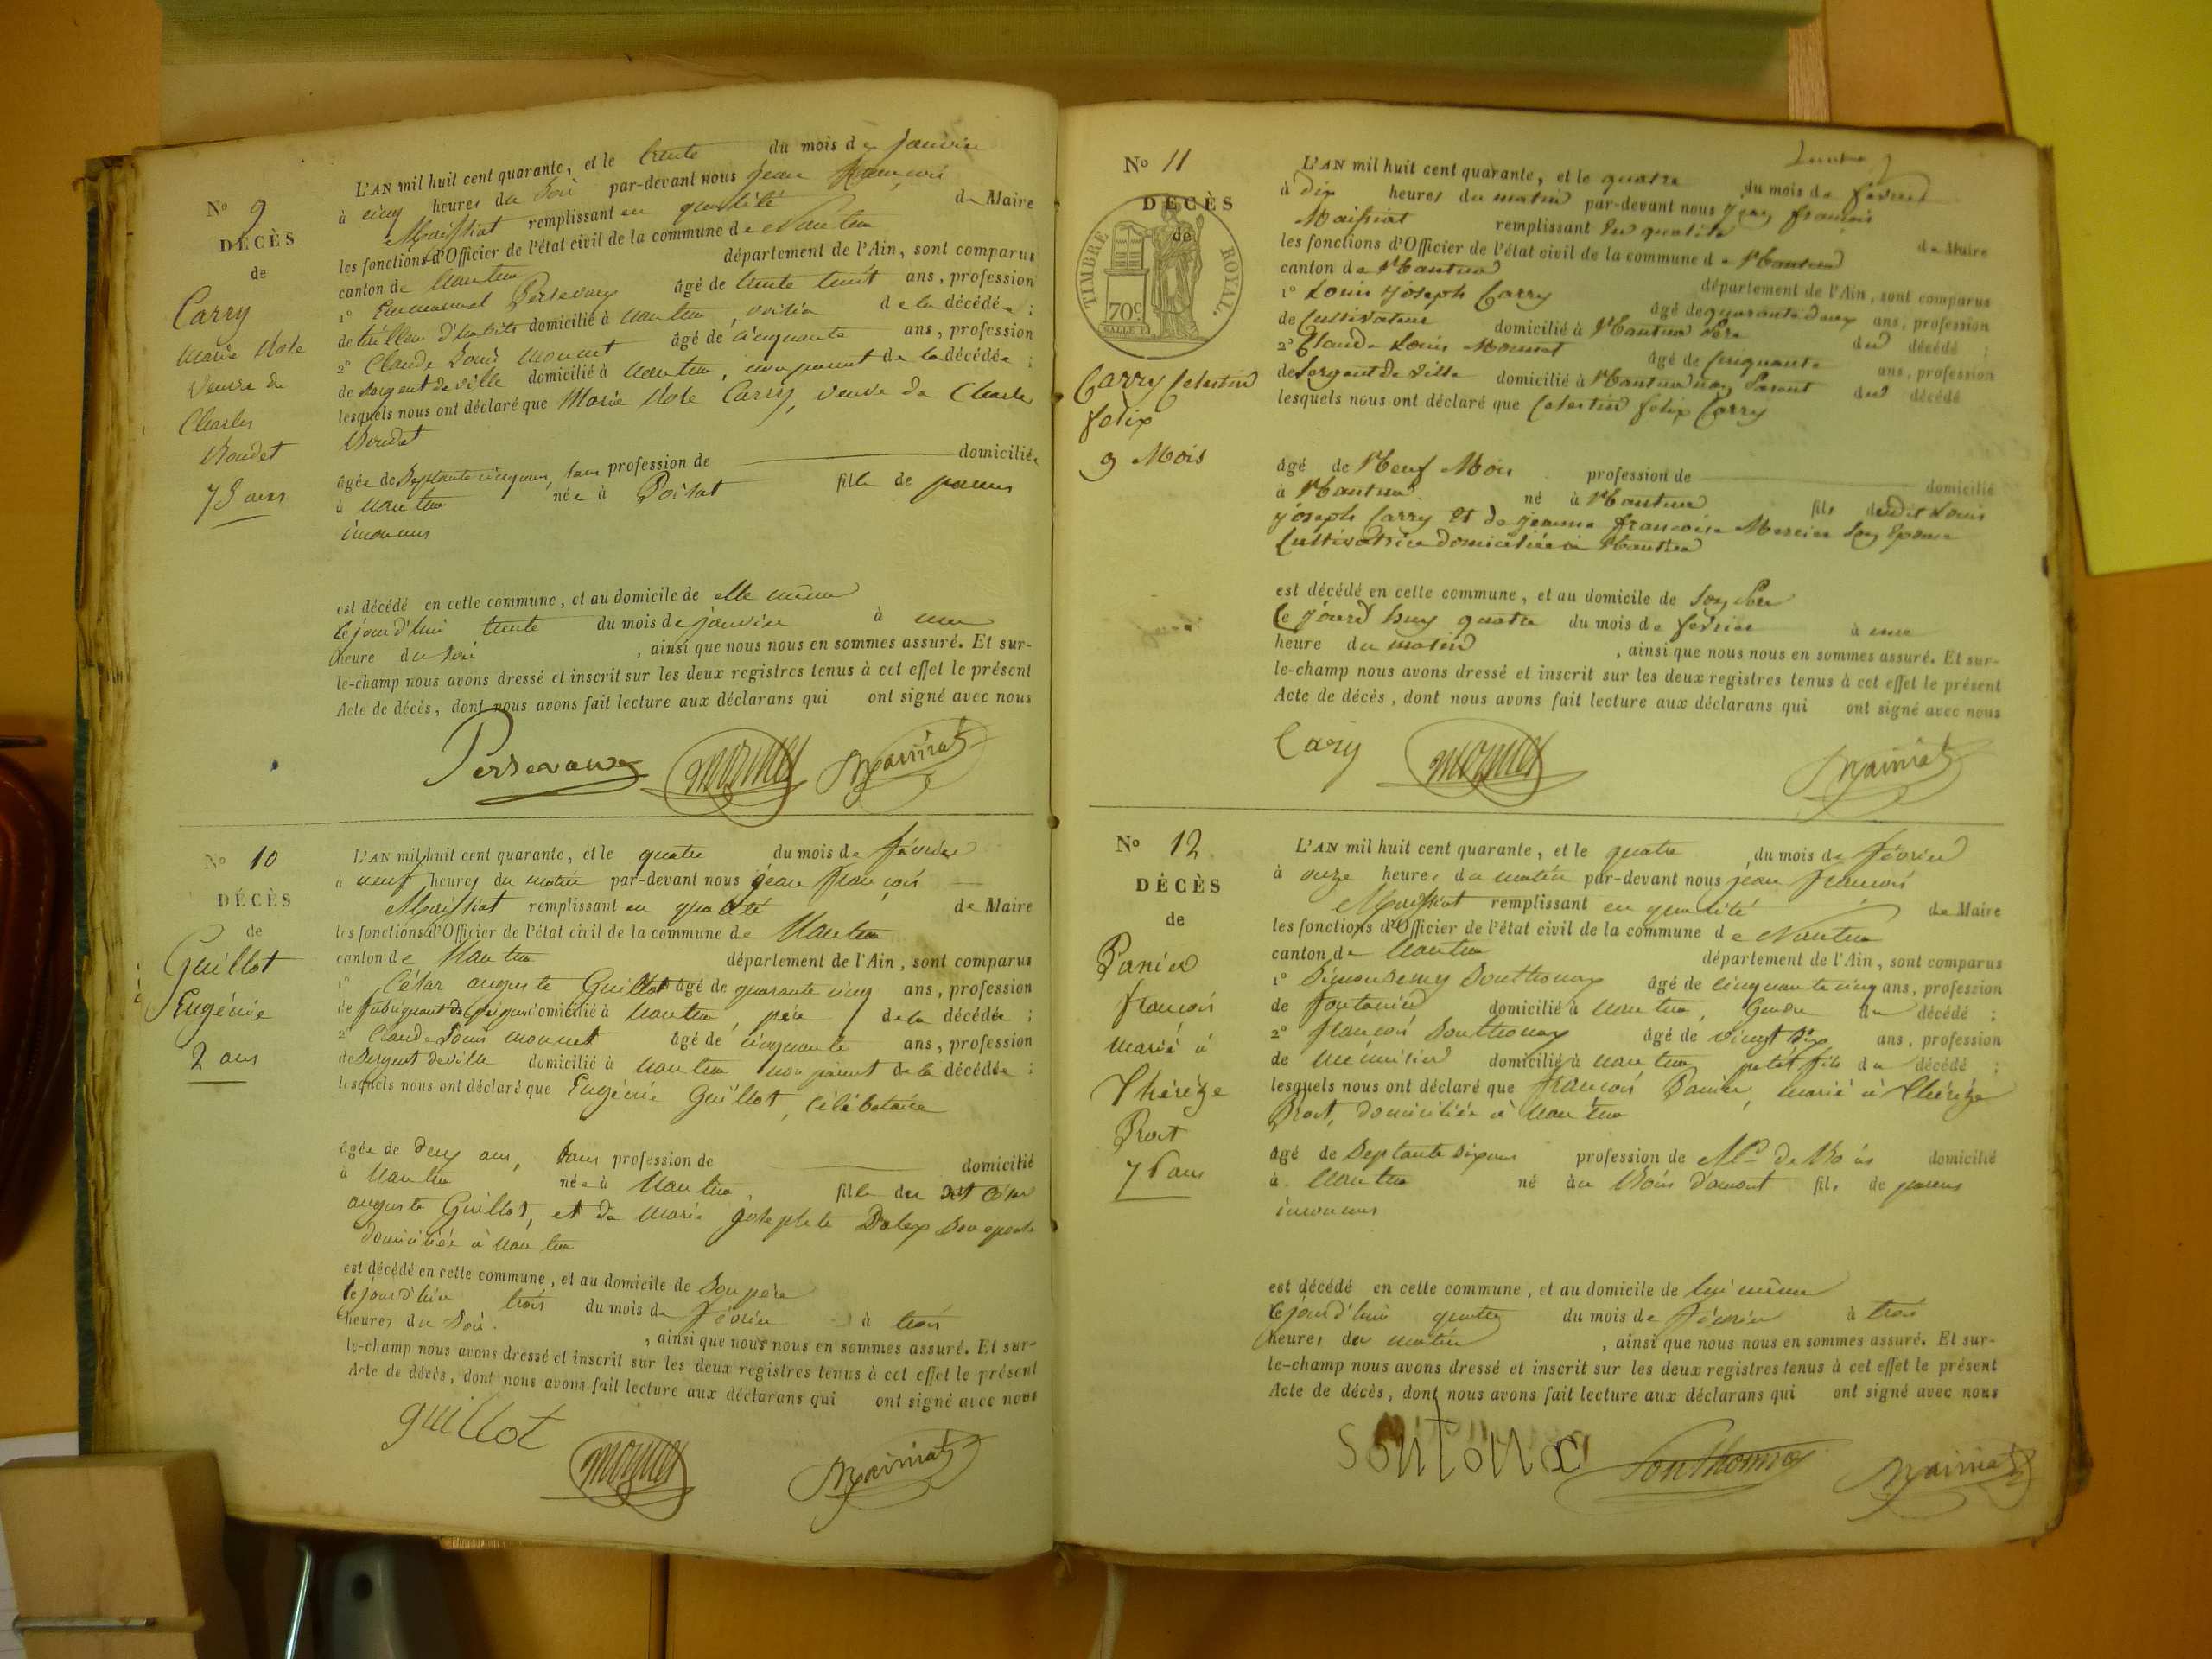 N° 9
DÉCÈS
de
Carry
Marie
Veuve de
Charles
75 ans
L'AN mil huit cent quarante, et le trente du mois de janvier
à cinq heures du soir par-devant nous jean François
Maissiat remplissant en qualité de Maire
les fonctions d'Officier de l'état civil de la commune de Nantua
canton de Nantua département de l'Ain, sont comparus
1° Emmanuel âgé de trente huit ans, profession
de tailleur d'habits domicilié à Nantua, voisin de la décédée ;
2° Claude Louis Monnet âgé de cinquante ans, profession
de sergent de ville domicilié à Nantua, non parent de la décédée ;
lesquels nous ont déclaré que Marie Carry, veuve de Charles
âgée de septante cinq ans, sans profession de domiciliée
à Nantua née à Poisat fille de parens
inconnus
est décédé en cette commune, et au domicile de elle même
cejourd'hui trente du mois de janvier à une
heure du soir , ainsi que nous nous en sommes assuré. Et sur-
le-champ nous avons dressé et inscrit sur les deux registres tenus à cet effet le présent
Acte de décès, dont nous avons fait lecture aux déclarans qui ont signé avec nous
monnet Maissiat
N° 10
DÉCÈS
de
Guillot
Eugénie
2 ans
L'AN mil huit cent quarante, et le quatre du mois de février
à neuf heures du matin par-devant nous jean François
Maissiat remplissant en qualité de Maire
les fonctions d'Officier de l'état civil de la commune de Nantua
canton de Nantua département de l'Ain, sont comparus
1° César auguste Guillot âgé de quarante cinq ans, profession
de fabriquant de peignes domicilié à Nantua père de la décédée ;
2° Claude Louis monnet âgé de cinquante ans, profession
de Sergent de ville domicilié à Nantua non parent de la décédée ;
lesquels nous ont déclaré que Eugénie Guillot, célibataire
âgée de deux ans, sans profession de domicilié
à Nantua née à Nantua, fille du dit César
auguste Guillot, et de Marie Josephte son épouse
domiciliée à Nantua
est décédé en cette commune, et au domicile de son père
cejourd'hui trois du mois de février à trois
heures du soir. , ainsi que nous nous en sommes assuré. Et sur-
le-champ nous avons dressé et inscrit sur les deux registres tenus à cet effet le présent
Acte de décès, dont nous avons fait lecture aux déclarans qui ont signé avec nous
guillot monnet Maissiat
N° 11
DÉCÈS
de
TIMBRE ROYAL.
70c.
Carry Celestin
felix
9 Mois
L'AN mil huit cent quarante, et le quatre du mois de fevrier
à dix heures du matin par-devant nous Jean francois
Maissiat remplissant en qualité de Maire
les fonctions d'Officier de l'état civil de la commune de Nantua
canton de Nantua département de l'Ain, sont comparus
1° Louis Joseph Carry âgé de quarante deux ans, profession
de Cultivateur domicilié à Nantua père du décédé ;
2° Claude Louis Monnet âgé de Cinquante ans, profession
de Sergent de ville domicilié à Nantua non parent du décédé
lesquels nous ont déclaré que Celestin felix Carry
âgé de Neuf Mois profession de domicilié
à Nantua né à Nantua fils du dit Louis
Joseph Carry et de Jeanne francoise Mercier son Epouse
Cultivatrice domiciliée à Nantua
est décédé en cette commune, et au domicile de son père
Ce Jourd huy quatre du mois de fevrier à une
heure du matin , ainsi que nous nous en sommes assuré. Et sur-
le-champ nous avons dressé et inscrit sur les deux registres tenus à cet effet le présent
Acte de décès, dont nous avons fait lecture aux déclarans qui ont signé avec nous
Cary monnet Maissiat
N° 12
DÉCÈS
de
Panier
francois
marié à
Thérèze
Prost
76 ans
L'AN mil huit cent quarante, et le quatre du mois de février
à onze heures du matin par-devant nous jean francois
Maissiat remplissant en qualité de Maire
les fonctions d'Officier de l'état civil de la commune de Nantua
canton de Nantua département de l'Ain, sont comparus
1° Simon Remy Sonthonax âgé de cinquante cinq ans, profession
de fontenier domicilié à Nantua, Gendre du décédé ;
2° francois Sonthonax âgé de vingt six ans, profession
de menuisier domicilié à Nantua petit fils du décédé ;
lesquels nous ont déclaré que françois Panier, marié à Thérèze
Prost, domiciliée à Nantua
âgé de septante six ans profession de Md de Bois domicilié
à Nantua né au Bois d'amont fils de parens
inconnus
est décédé en cette commune, et au domicile de lui même
cejourd'hui quatre du mois de février à trois
heures du matin , ainsi que nous nous en sommes assuré. Et sur-
le-champ nous avons dressé et inscrit sur les deux registres tenus à cet effet le présent
Acte de décès, dont nous avons fait lecture aux déclarans qui ont signé avec nous
sontonax Sonthonax Maissiat